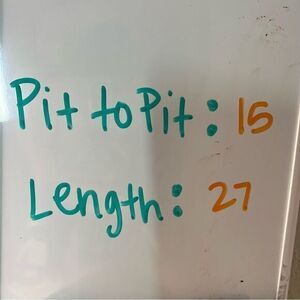 Pit to Pit: 15
Length: 27